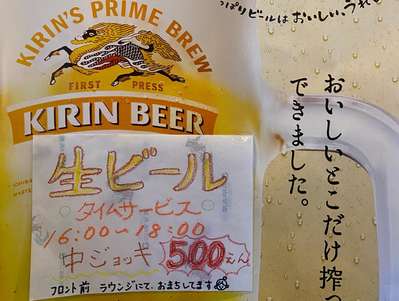 っぱりビールは おいしい、うれ
KIRIN'S PRIME BREW
FIRST PRESS
KIRIN BEER
おいしいとこだけ搾っ
できました。
生ビール
タイムサービス
16:00〜18:00
中ジョッキ 500えん
フロント前 ラウンジにて、おまちしてます